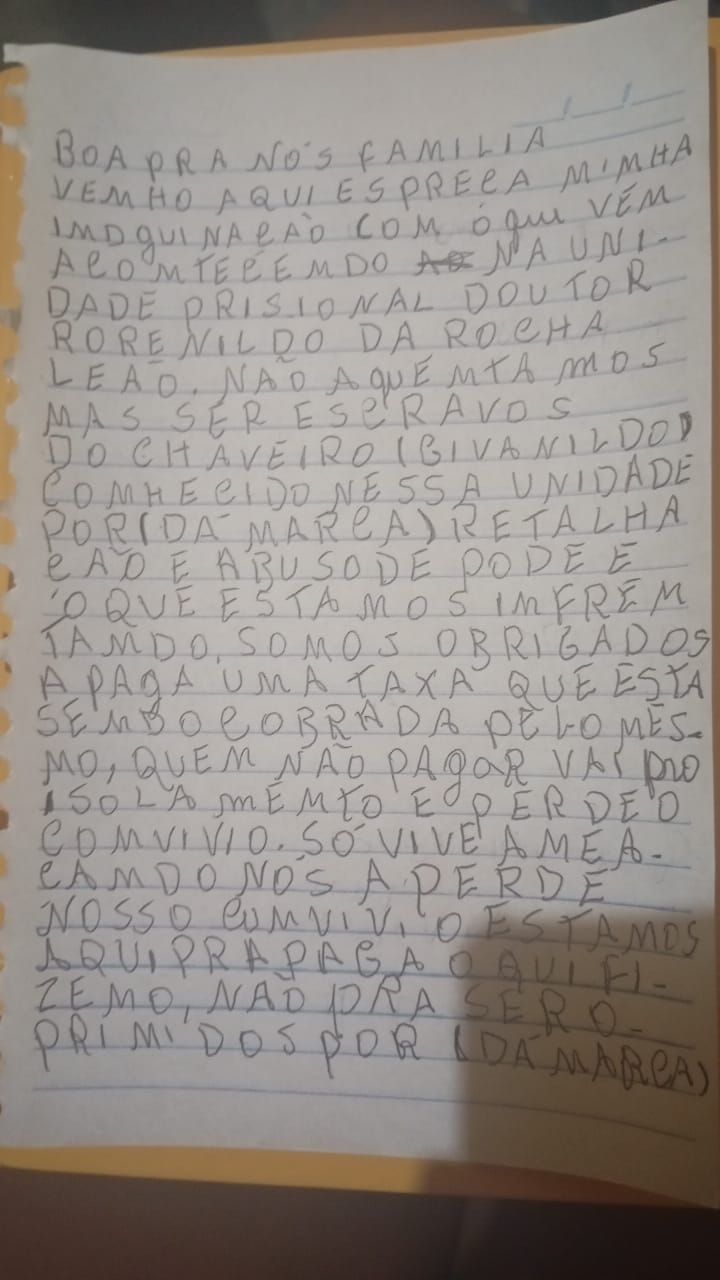 BOA PRA NÓS FAMILIA
VEMHO AQUI ESPRECA MIMHA
IMDGUINACAÕ COM Ó QUE VÉM
ACOMTECEMDO NA UNI-
DADE PRISIONAL DOUTOR
RORENILDO DA ROCHA
LEAÕ. NAÕ AQUEMTAMOS
MAS SER ESCRAVOS
DO CHAVEIRO (GIVANILDO)
COMHECIDO NESSA UNIDADE
POR (DA MARCA) RETALHA
CAÕ E ABUSO DE PODE E
O QUE ESTAMOS IMFREM
TAMDO. SOMOS OBRIGADOS
A PAGA UMA TAXA QUE ESTA
SEMDO COBRADA PELO MES-
MO, QUEM NÃO PAGAR VAI PRO
ISOLAMEMTO E PERDE O
COMVIVIO. SÓ VIVE AMEA-
CAMDO NÓS A PERDE
NOSSO COMVIVIO ESTAMOS
AQUI PRA PAGA O QUI FI-
ZEMO, NAÕ PRA SER O-
PRIMIDOS POR (DA MARCA)